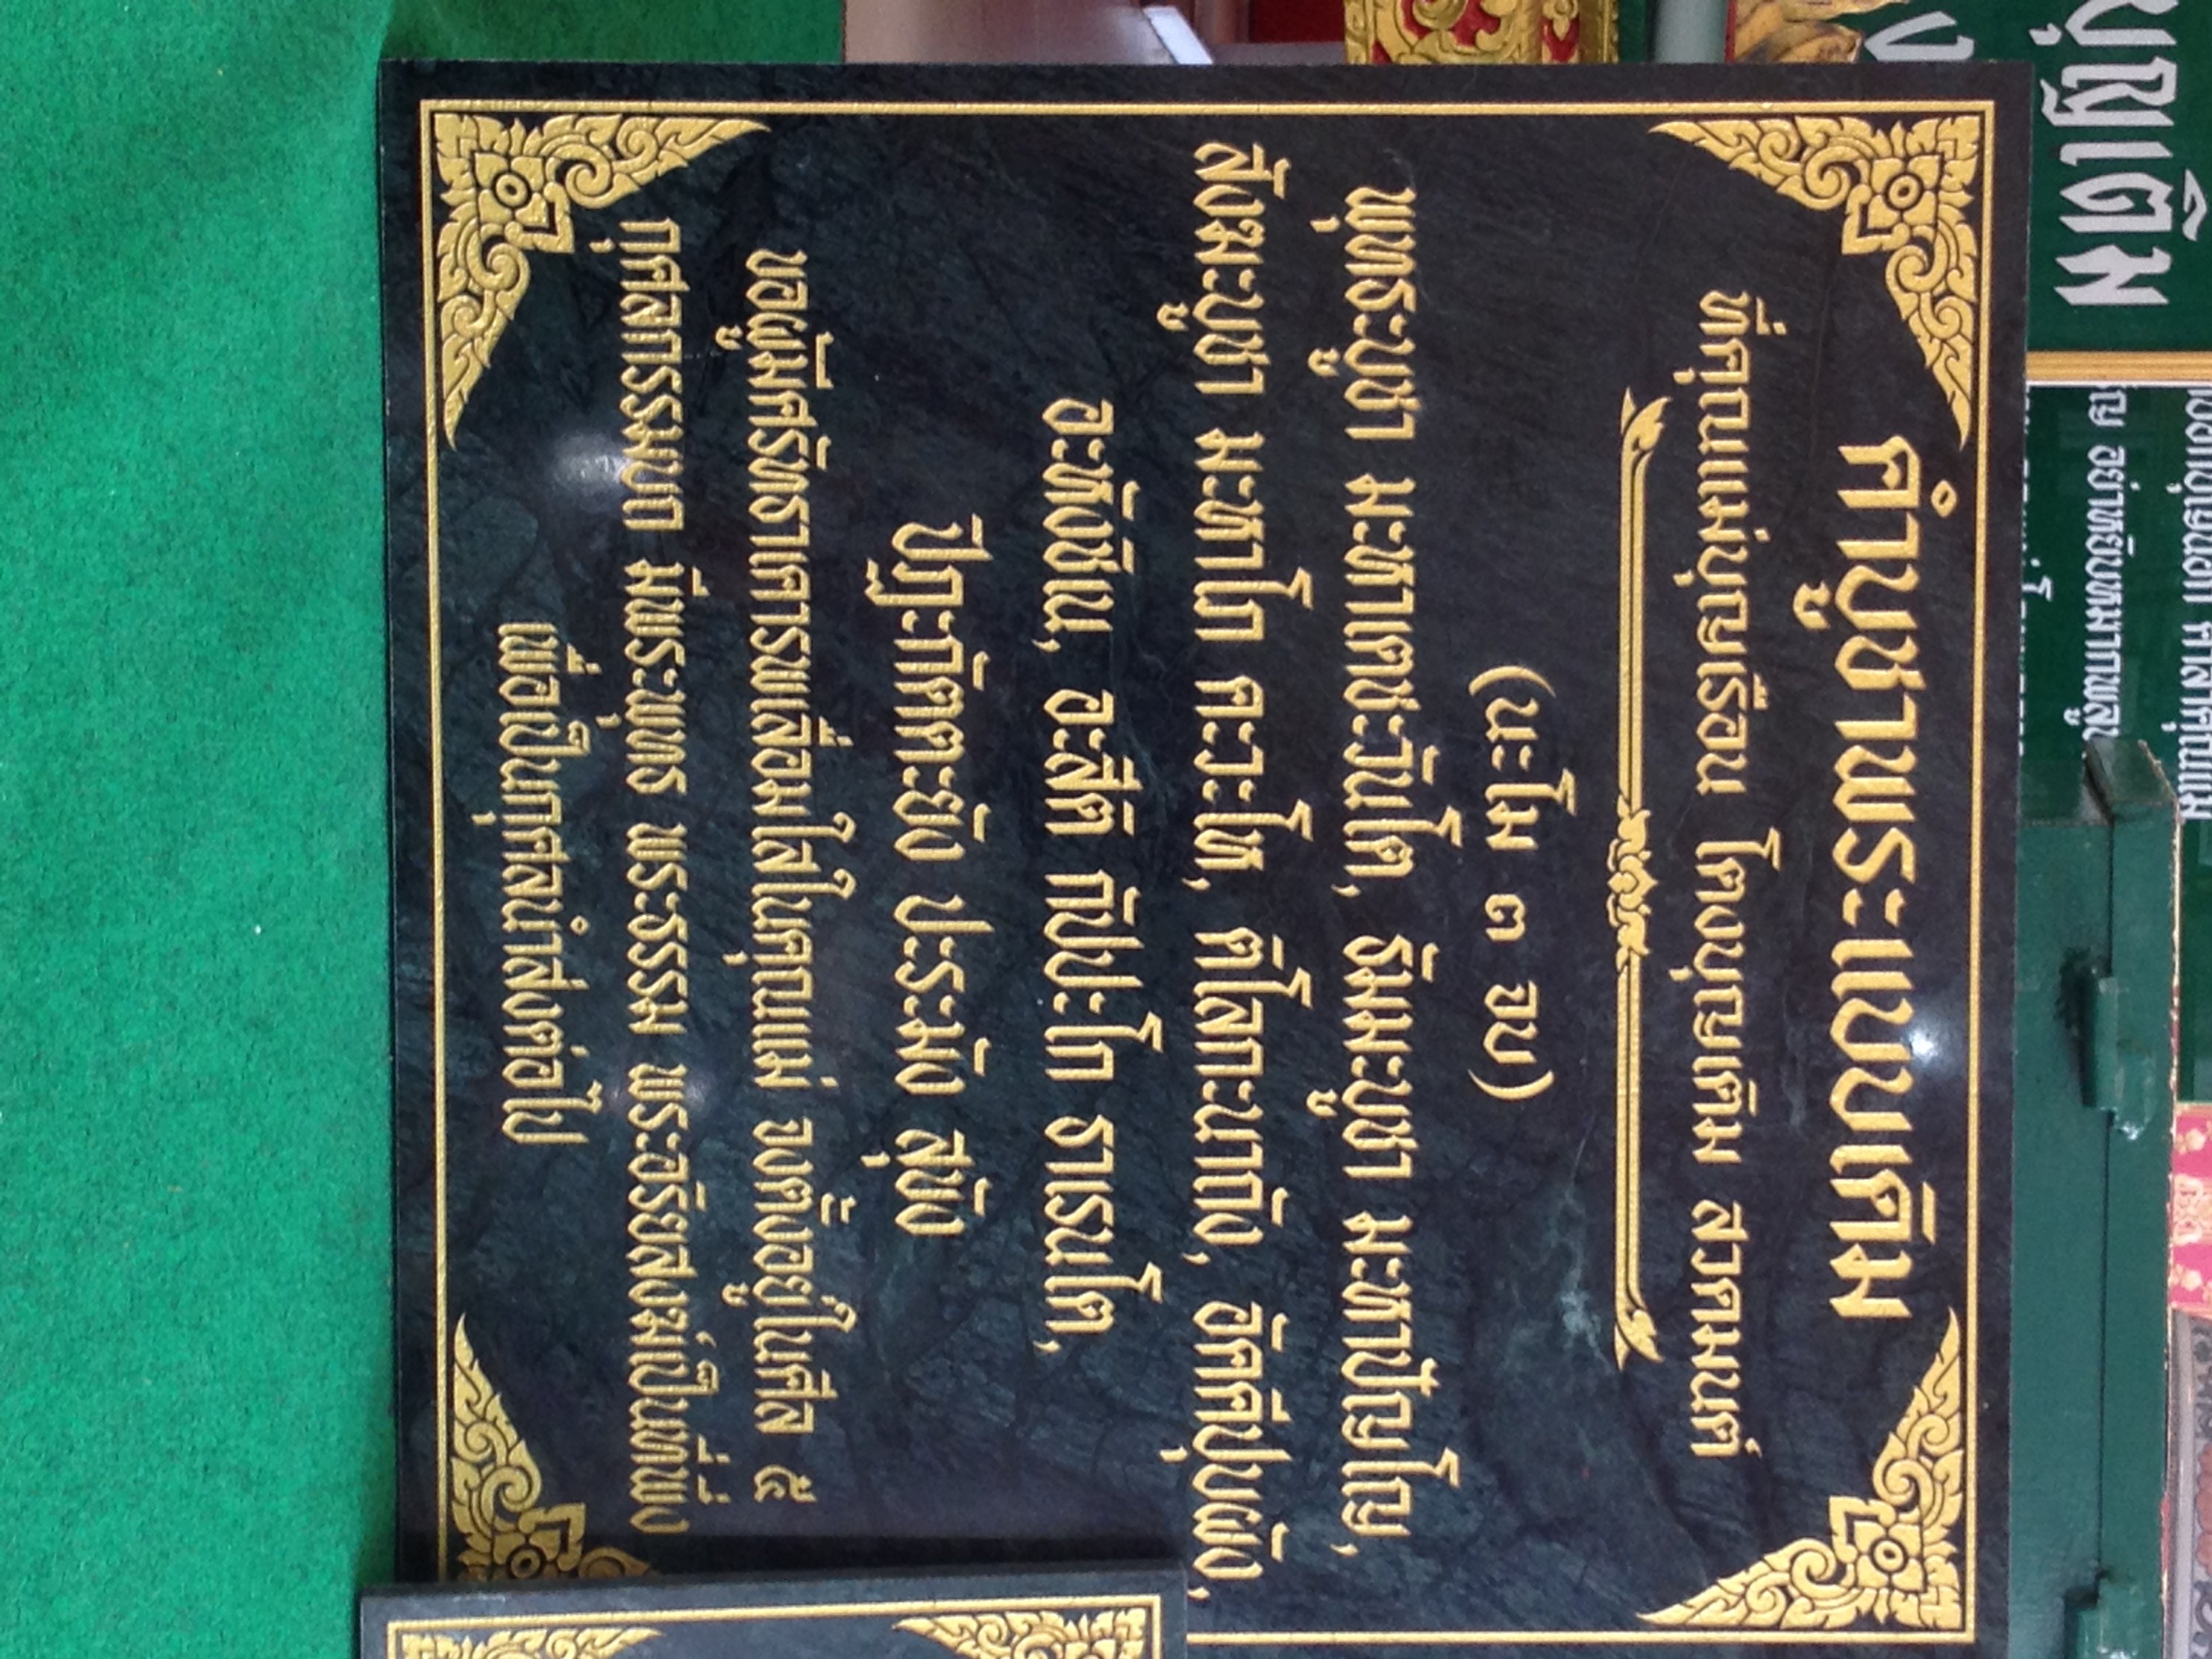 คำบูชาพระแบบเดิม
ที่คุณแม่บุญเรือน โตงบุญเติม สวดมนต์
(นะโม ๓ จบ)
พุทธะบูชา มะหาเตชะวันโต, ธัมมะบูชา มะหาปัญโญ,
สังฆะบูชา มะหาโภ คะวะโห, ติโลกะนาถัง, อัคคสัปบุผัง,
อะหังชิน, อะสีติ กัปปะโก ธาเรนโต,
ปัฏะภัคคะยัง ปะระมัง สุขัง
ขอผู้มีศรัทธาเคารพเลื่อมใสในคุณแม่ จงตั้งอยู่ในศีล ๕
กุศลกรรมบถ มีพระพุทธ พระธรรม พระอริยสงฆ์เป็นที่พึ่ง
เพื่อเป็นกุศลนำส่งต่อไป
บุญเติม